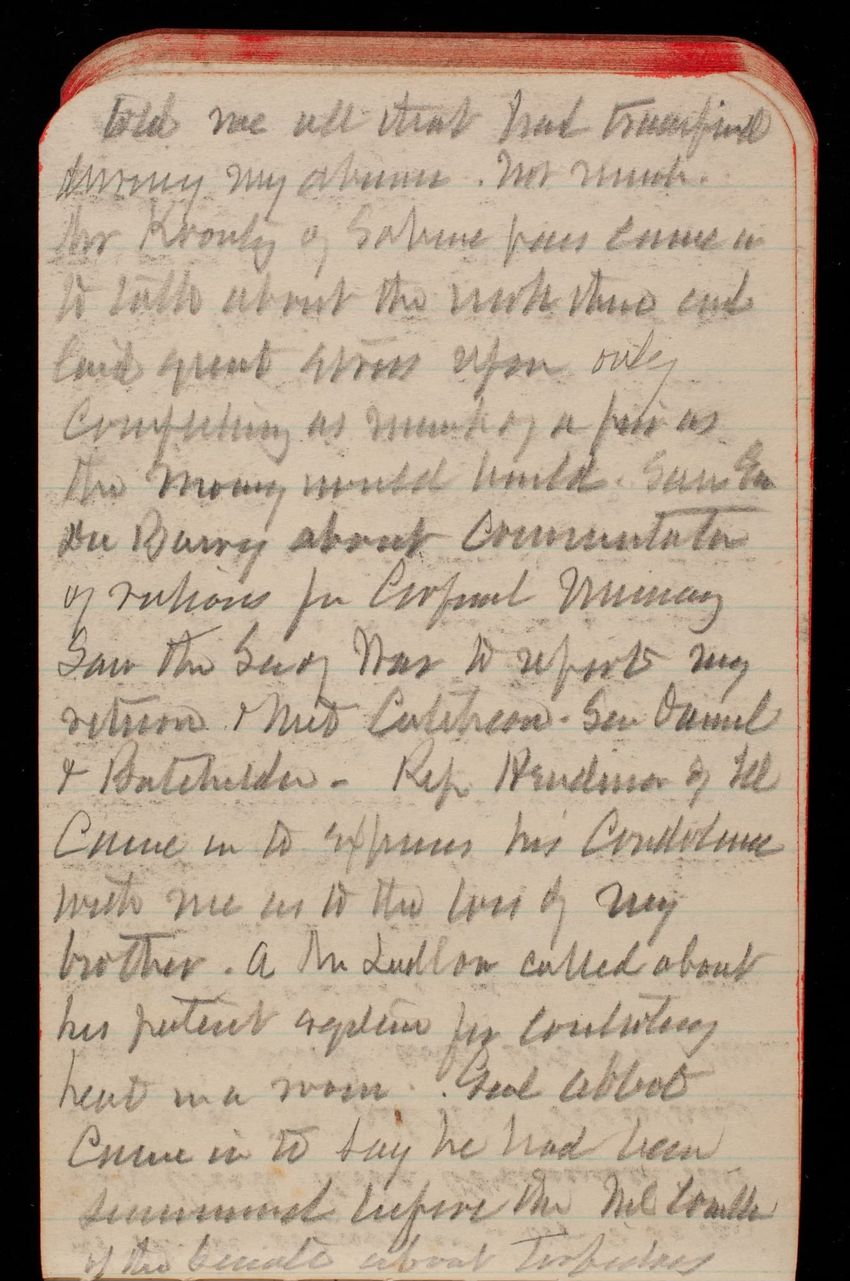 told me all that had transpired
during my absence. Not much.
Mr Krouly of Sabine pass came in
to talk about the work there and
laid great stress upon only
Completing as much of a pier as
the money would build. Saw Gen
Du Barry about Commutation
of rations for Corporal Murray
Saw the Sec of War to report my
return & met Cutcheon. Sen Daniel
& Batchelder - Rep Henderson of Ill
Came in to express his Condolence
with me as to the loss of my
brother. A Mr Ludlow called about
his patent system for controlling
heat in a room. Genl Abbot
Came in to say he had been
summoned before the Mil Comtte
of the Senate about Torpedoes